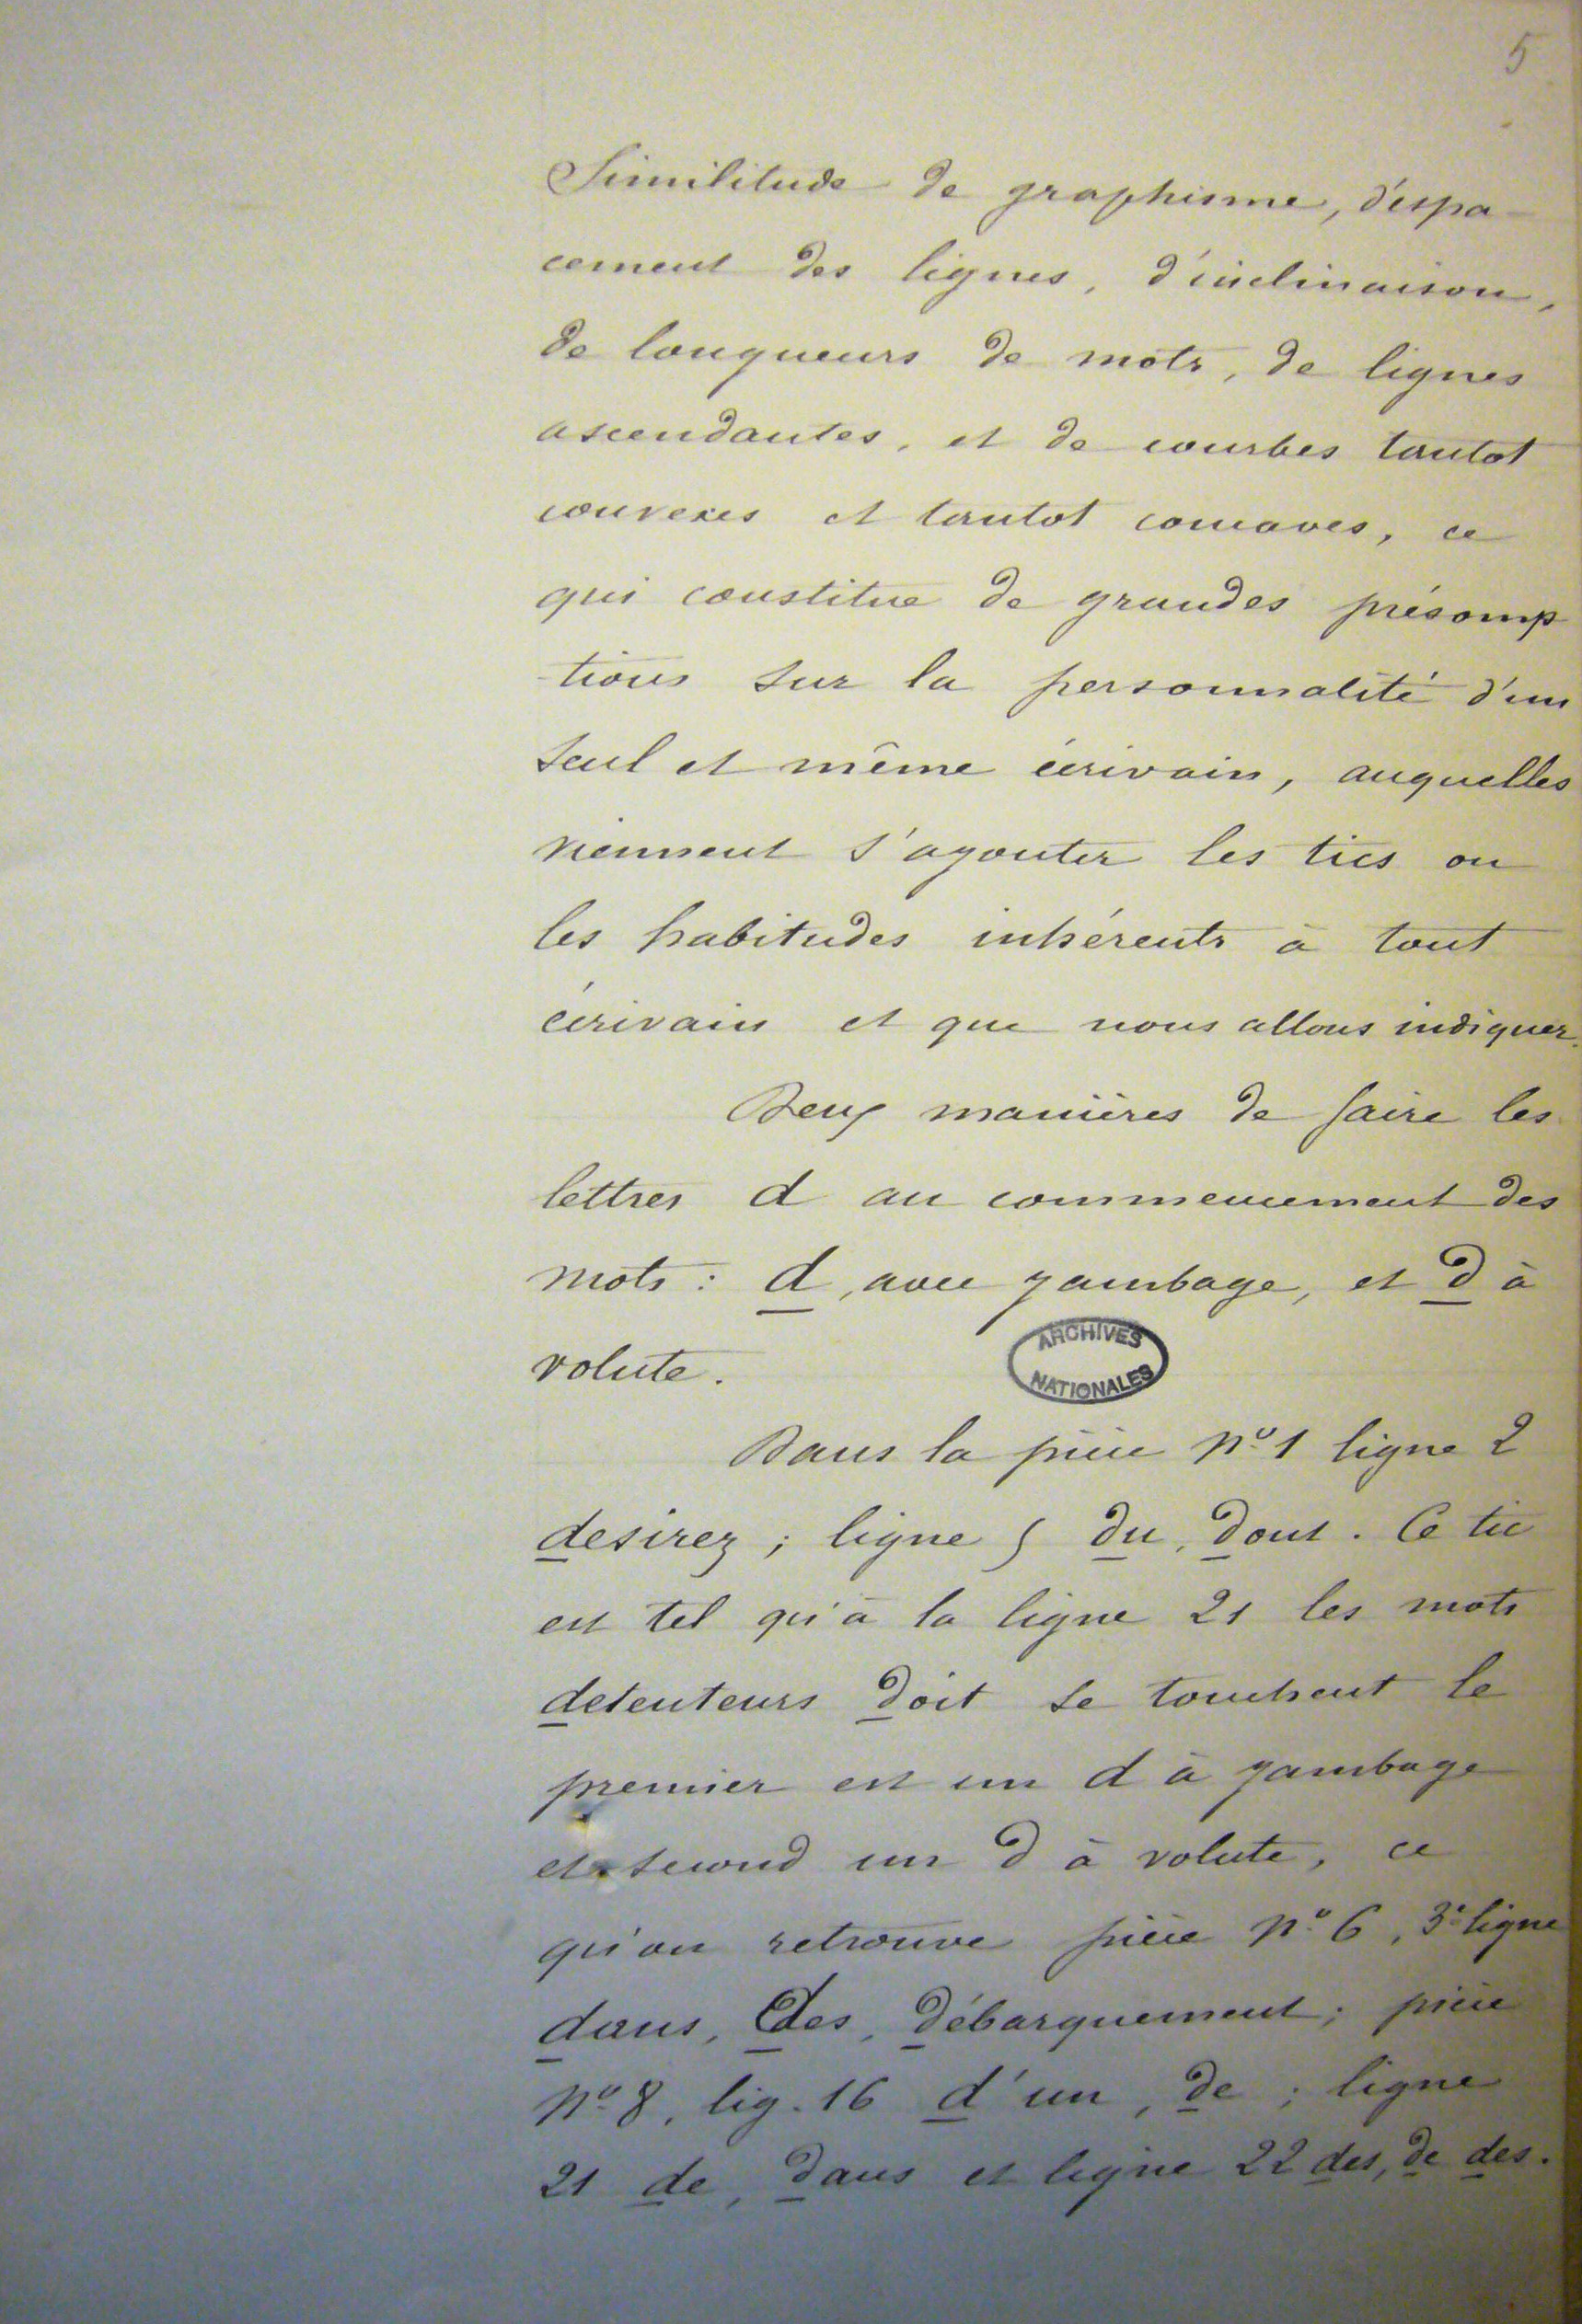 5
Similitude de graphisme, d'espa-
cement des lignes, d'inclinaison,
de longueurs de mots, de lignes
ascendantes, et de courbes tantot
convexes et tantot concaves, ce
qui constitue de grandes présomp
-tions sur la personnalité d'un
seul et même écrivain, auquelles
viennent s'ajouter les tics ou
les habitudes inhérents à tout
écrivain et que nous allons indiquer.
Deux manières de faire les
lettres d au commencement des
mots : d, avec jambage, et d à
volute.
ARCHIVES
NATIONALES
Dans la pièce No 1 ligne 2
desirez ; ligne 5 du, dont. Ce tic
est tel qu'à la ligne 21 les mots
detenteurs doit se touchent le
premier est un d à jambage
et second un d à volute, ce
qu'on retrouve pièce No 6, 3e ligne
dans, des, débarquement; pièce
No 8, lig. 16 d'un, de ; ligne
21 de, dans et ligne 22 des, de des.